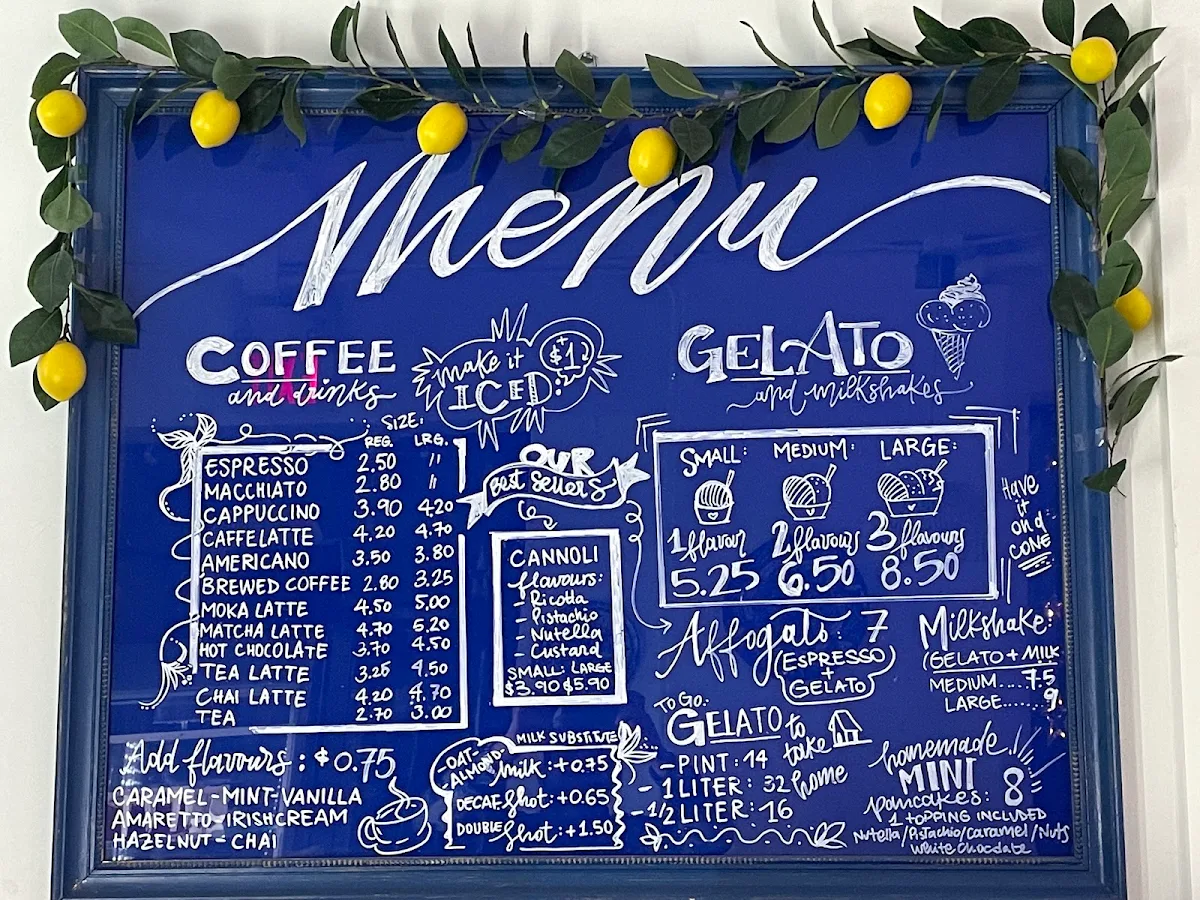 Menu
COFFEE
and drinks
make it
ICED
+$1
SIZE:
REG. LRG.
ESPRESSO 2.50 "
MACCHIATO 2.80 "
CAPPUCCINO 3.90 4.20
CAFFELATTE 4.20 4.70
AMERICANO 3.50 3.80
BREWED COFFEE 2.80 3.25
MOKA LATTE 4.50 5.00
MATCHA LATTE 4.70 5.20
HOT CHOCOLATE 3.70 4.50
TEA LATTE 3.25 4.50
CHAI LATTE 4.20 4.70
TEA 2.70 3.00
Add flavours: $0.75
CARAMEL-MINT-VANILLA
AMARETTO-IRISHCREAM
HAZELNUT-CHAI
OUR
Best Sellers
CANNOLI
flavours:
- Ricotta
- Pistachio
- Nutella
- Custard
SMALL: LARGE
$3.90 $5.90
MILK SUBSTITUTE
-OAT-
ALMOND- milk: +0.75
DECAF Shot: +0.65
DOUBLE Shot: +1.50
GELATO
and milkshakes
SMALL: MEDIUM: LARGE:
1 flavour 2 flavours 3 flavours
5.25 6.50 8.50
Have
it
on a
CONE
Affogato: 7
(ESPRESSO
+
GELATO)
Milkshake:
(GELATO + MILK
MEDIUM....7.5
LARGE.......9
TO GO:
GELATO to
take
home
- PINT: 14
- 1 LITER: 32
- 1/2 LITER: 16
homemade
MINI
pancakes: 8
1 TOPPING INCLUDED
Nutella/Pistachio/caramel/Nuts
white chocolate